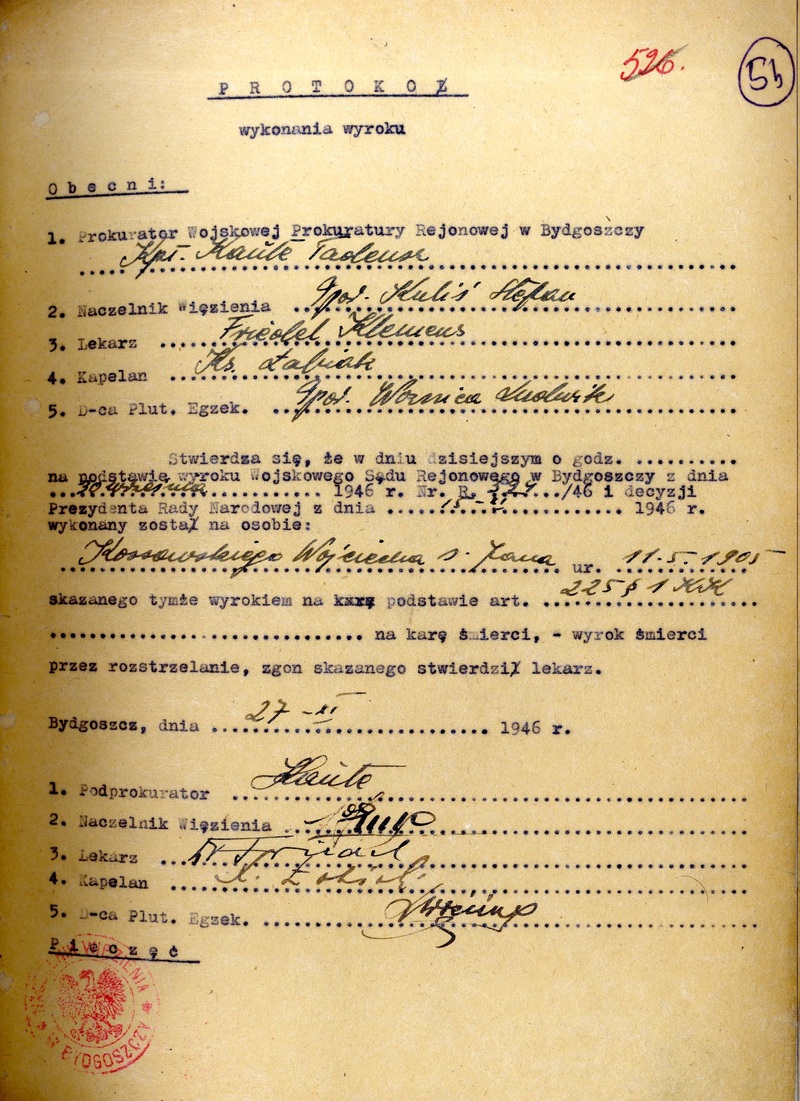 526.
5b
P R O T O K O Ł
wykonania wyroku
O b e c n i :
1. Prokurator Wojskowej Prokuratury Rejonowej w Bydgoszczy
Kpt. Haute Tadeusz
2. Naczelnik Więzienia Ppor. Kuliś Stefan
3. Lekarz Friedel Klemens
4. Kapelan Ks. Łabiak
5. D-ca Plut. Egzek. Ppor. Woźnica Ludwik
Stwierdza się, że w dniu dzisiejszym o godz. ..........
na podstawie wyroku Wojskowego Sądu Rejonowego w Bydgoszczy z dnia
września 1946 r. Nr. R. /46 i decyzji
Prezydenta Rady Narodowej z dnia 1946 r.
wykonany został na osobie:
Kossowskiego Wojciecha s. Jana ur. 11-5-1905
skazanego tymże wyrokiem na karę podstawie art. 225 § 1 KK
.............................. na karę śmierci, - wyrok śmierci
przez rozstrzelanie, zgon skazanego stwierdził lekarz.
Bydgoszcz, dnia 27-XI 1946 r.
1. Podprokurator Haute
2. Naczelnik Więzienia
3. Lekarz
4. Kapelan
5. D-ca Plut. Egzek.
P i e c z ę ć
W BYDGOSZCZY